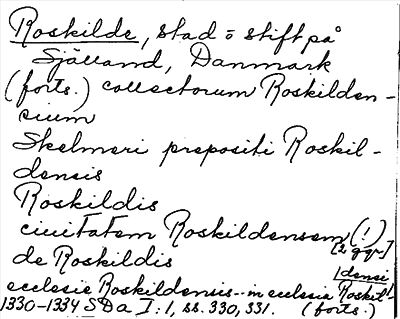 Roskilde, stad o stift på
Själland, Danmark
(forts.) collectorum Roskilden-
cium
Skelmeri prepositi Roskil-
densis
Roskildis
ciuitatem Roskildensem (!)
[2 ggr]
de Roskildis
ecclesie Roskildensis - in ecclesia Roskil-
/densi
1330-1334 SDa I:1, ss. 330, 331. (forts.)